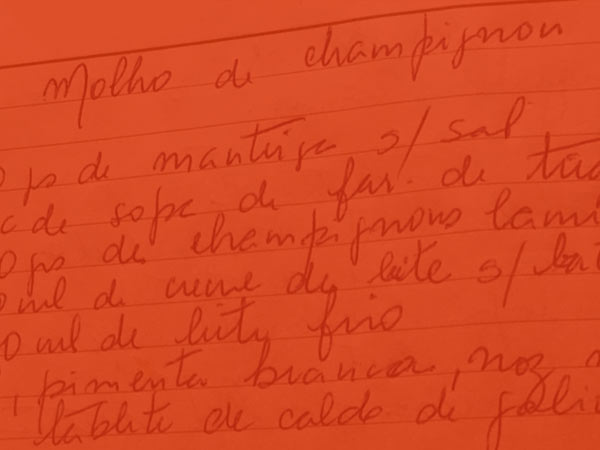 Molho de champignon
gs de manteiga s/ sal
c de sopa de far. de
gs de champignons lami
ml de creme de leite s/
0 ml de leite frio
, pimenta branca, noz
tablete de caldo de